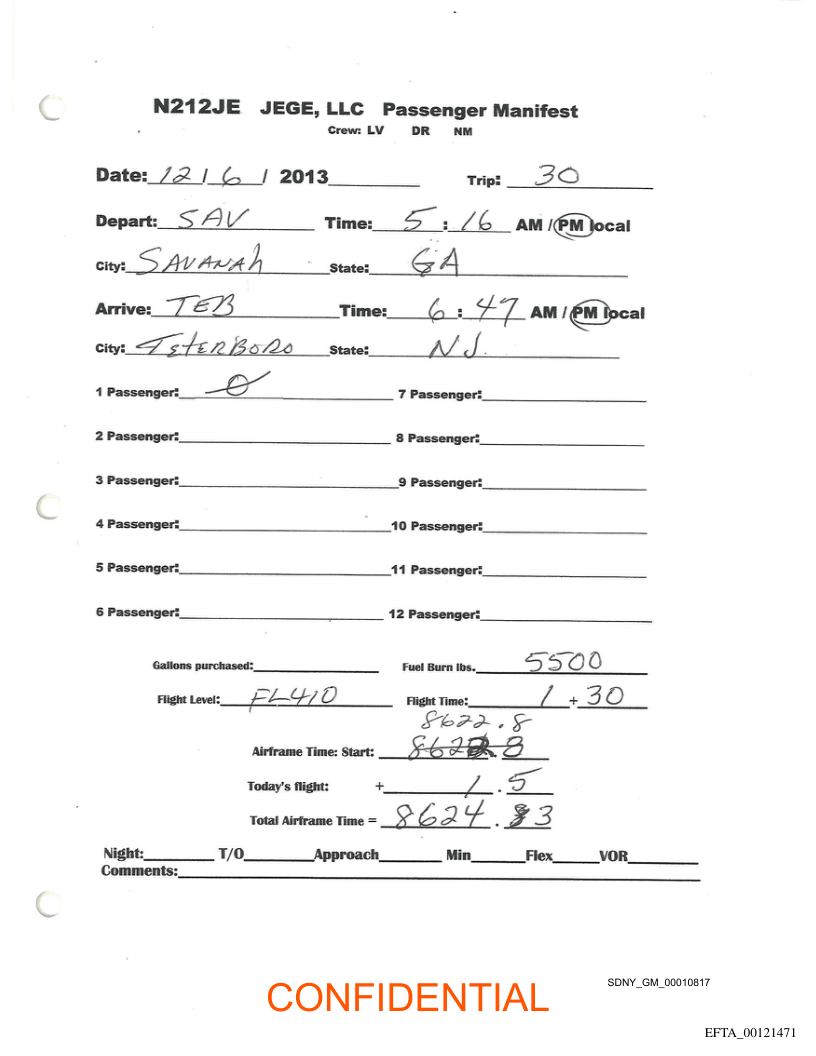 N212JE JEGE, LLC Passenger Manifest
Crew: LV DR NM
Date: 12 / 6 / 2013 Trip: 30
Depart: SAV Time: 5 : 16 AM / PM local
City: SAVANAh State: GA
Arrive: TEB Time: 6 : 47 AM / PM local
City: TETERBORO State: NJ.
1 Passenger: 0 7 Passenger:
2 Passenger: 8 Passenger:
3 Passenger: 9 Passenger:
4 Passenger: 10 Passenger:
5 Passenger: 11 Passenger:
6 Passenger: 12 Passenger:
Gallons purchased: Fuel Burn lbs. 5500
Flight Level: FL410 Flight Time: 1 + 30
8622.8
Airframe Time: Start:
Today's flight: + 1 . 5
Total Airframe Time = 8624 . 3
Night: T/O Approach Min Flex VOR
Comments:
CONFIDENTIAL
SDNY_GM_00010817
EFTA_00121471